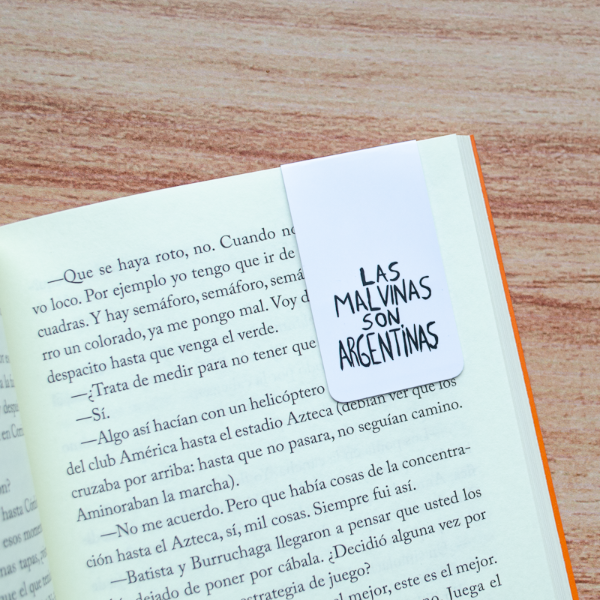 —Que se haya roto, no. Cuando
vo loco. Por ejemplo yo tengo que ir de
cuadras. Y hay semáforo, semáforo,
rro un colorado, ya me pongo mal. Voy
despacito hasta que venga el verde.
—¿Trata de medir para no tener que
—Sí.
—Algo así hacían con un helicóptero
del club América hasta el estadio Azteca (debían ver que los
cruzaba por arriba: hasta que no pasara, no seguían camino.
Aminoraban la marcha).
—No me acuerdo. Pero que había cosas de la concentra-
ción hasta el Azteca, sí, mil cosas. Siempre fui así.
—Batista y Burruchaga llegaron a pensar que usted los
dejado de poner por cábala. ¿Decidió alguna vez por
estrategia de juego?
mejor, este es el mejor.
Juega el
LAS
MALVINAS
SON
ARGENTINAS